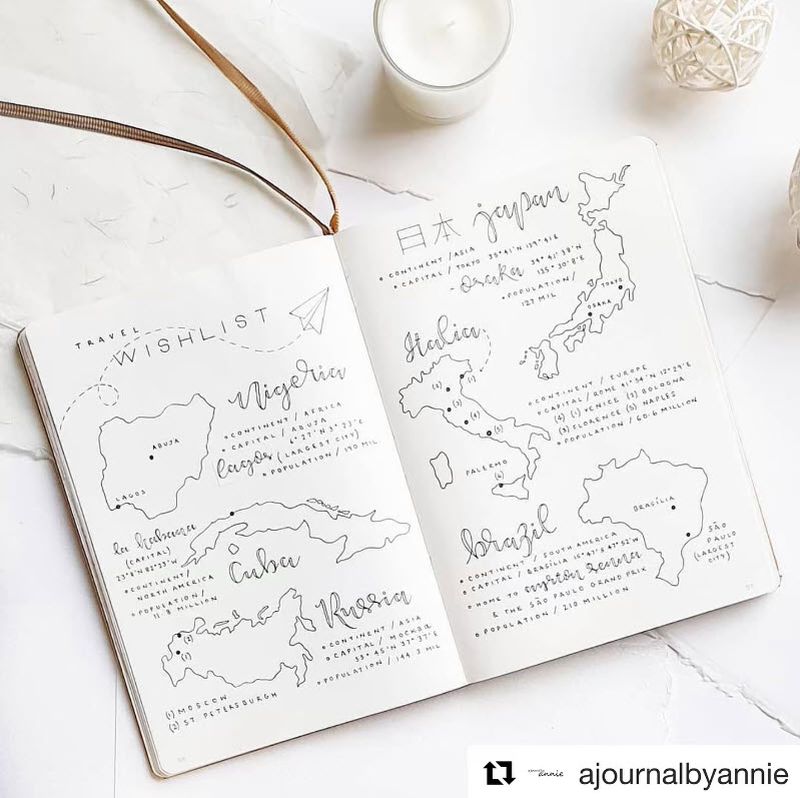 TRAVEL
WISHLIST
Nigeria
• CONTINENT / AFRICA
• CAPITAL / ABUJA
6°27'N 3°23'E
lagos (LARGEST CITY)
• POPULATION / 190 MIL
ABUJA
LAGOS
la habana
(CAPITAL)
23°8'N 82°23'W
• CONTINENT /
NORTH AMERICA
• POPULATION /
11.4 MILLION
Cuba
Russia
• CONTINENT / ASIA
• CAPITAL / МОСКВА
55°45'N 37°37'E
• POPULATION / 144.3 MIL
(2)
(1)
(1) MOSCOW
(2) ST. PETERSBURGH
日本 japan
• CONTINENT / ASIA
• CAPITAL / TOKYO 35°41'N 139°41'E
- osaka 34°41'38"N
135°30'8"E
• POPULATION /
127 MIL
TOKYO
OSAKA
Italia
• CONTINENT / EUROPE
• CAPITAL / ROME 41°54'N 12°29'E
(1) VENICE (2) BOLOGNA
(3) FLORENCE (5) NAPLES
• POPULATION / 60.6 MILLION
(1)
(2)
(3)
(4)
(5)
PALERMO
(6)
brazil
• CONTINENT / SOUTH AMERICA
• CAPITAL / BRASÍLIA 15°47'S 47°52'W
• HOME TO ayrton senna
& THE SÃO PAULO GRAND PRIX
• POPULATION / 210 MILLION
BRASÍLIA
SÃO
PAULO
(LARGEST
CITY)
annie
ajournalbyannie